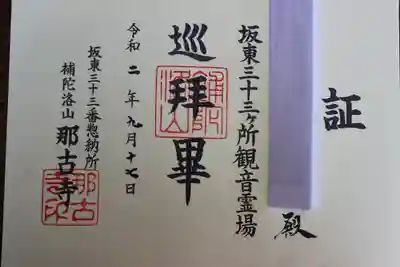 証
殿
坂東三十三ヶ所観音霊場
巡拝畢
令和二年九月十七日
坂東三十三番惣納所
補陀洛山那古寺